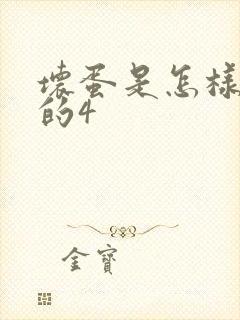 壞蛋是怎樣
的4
金寶